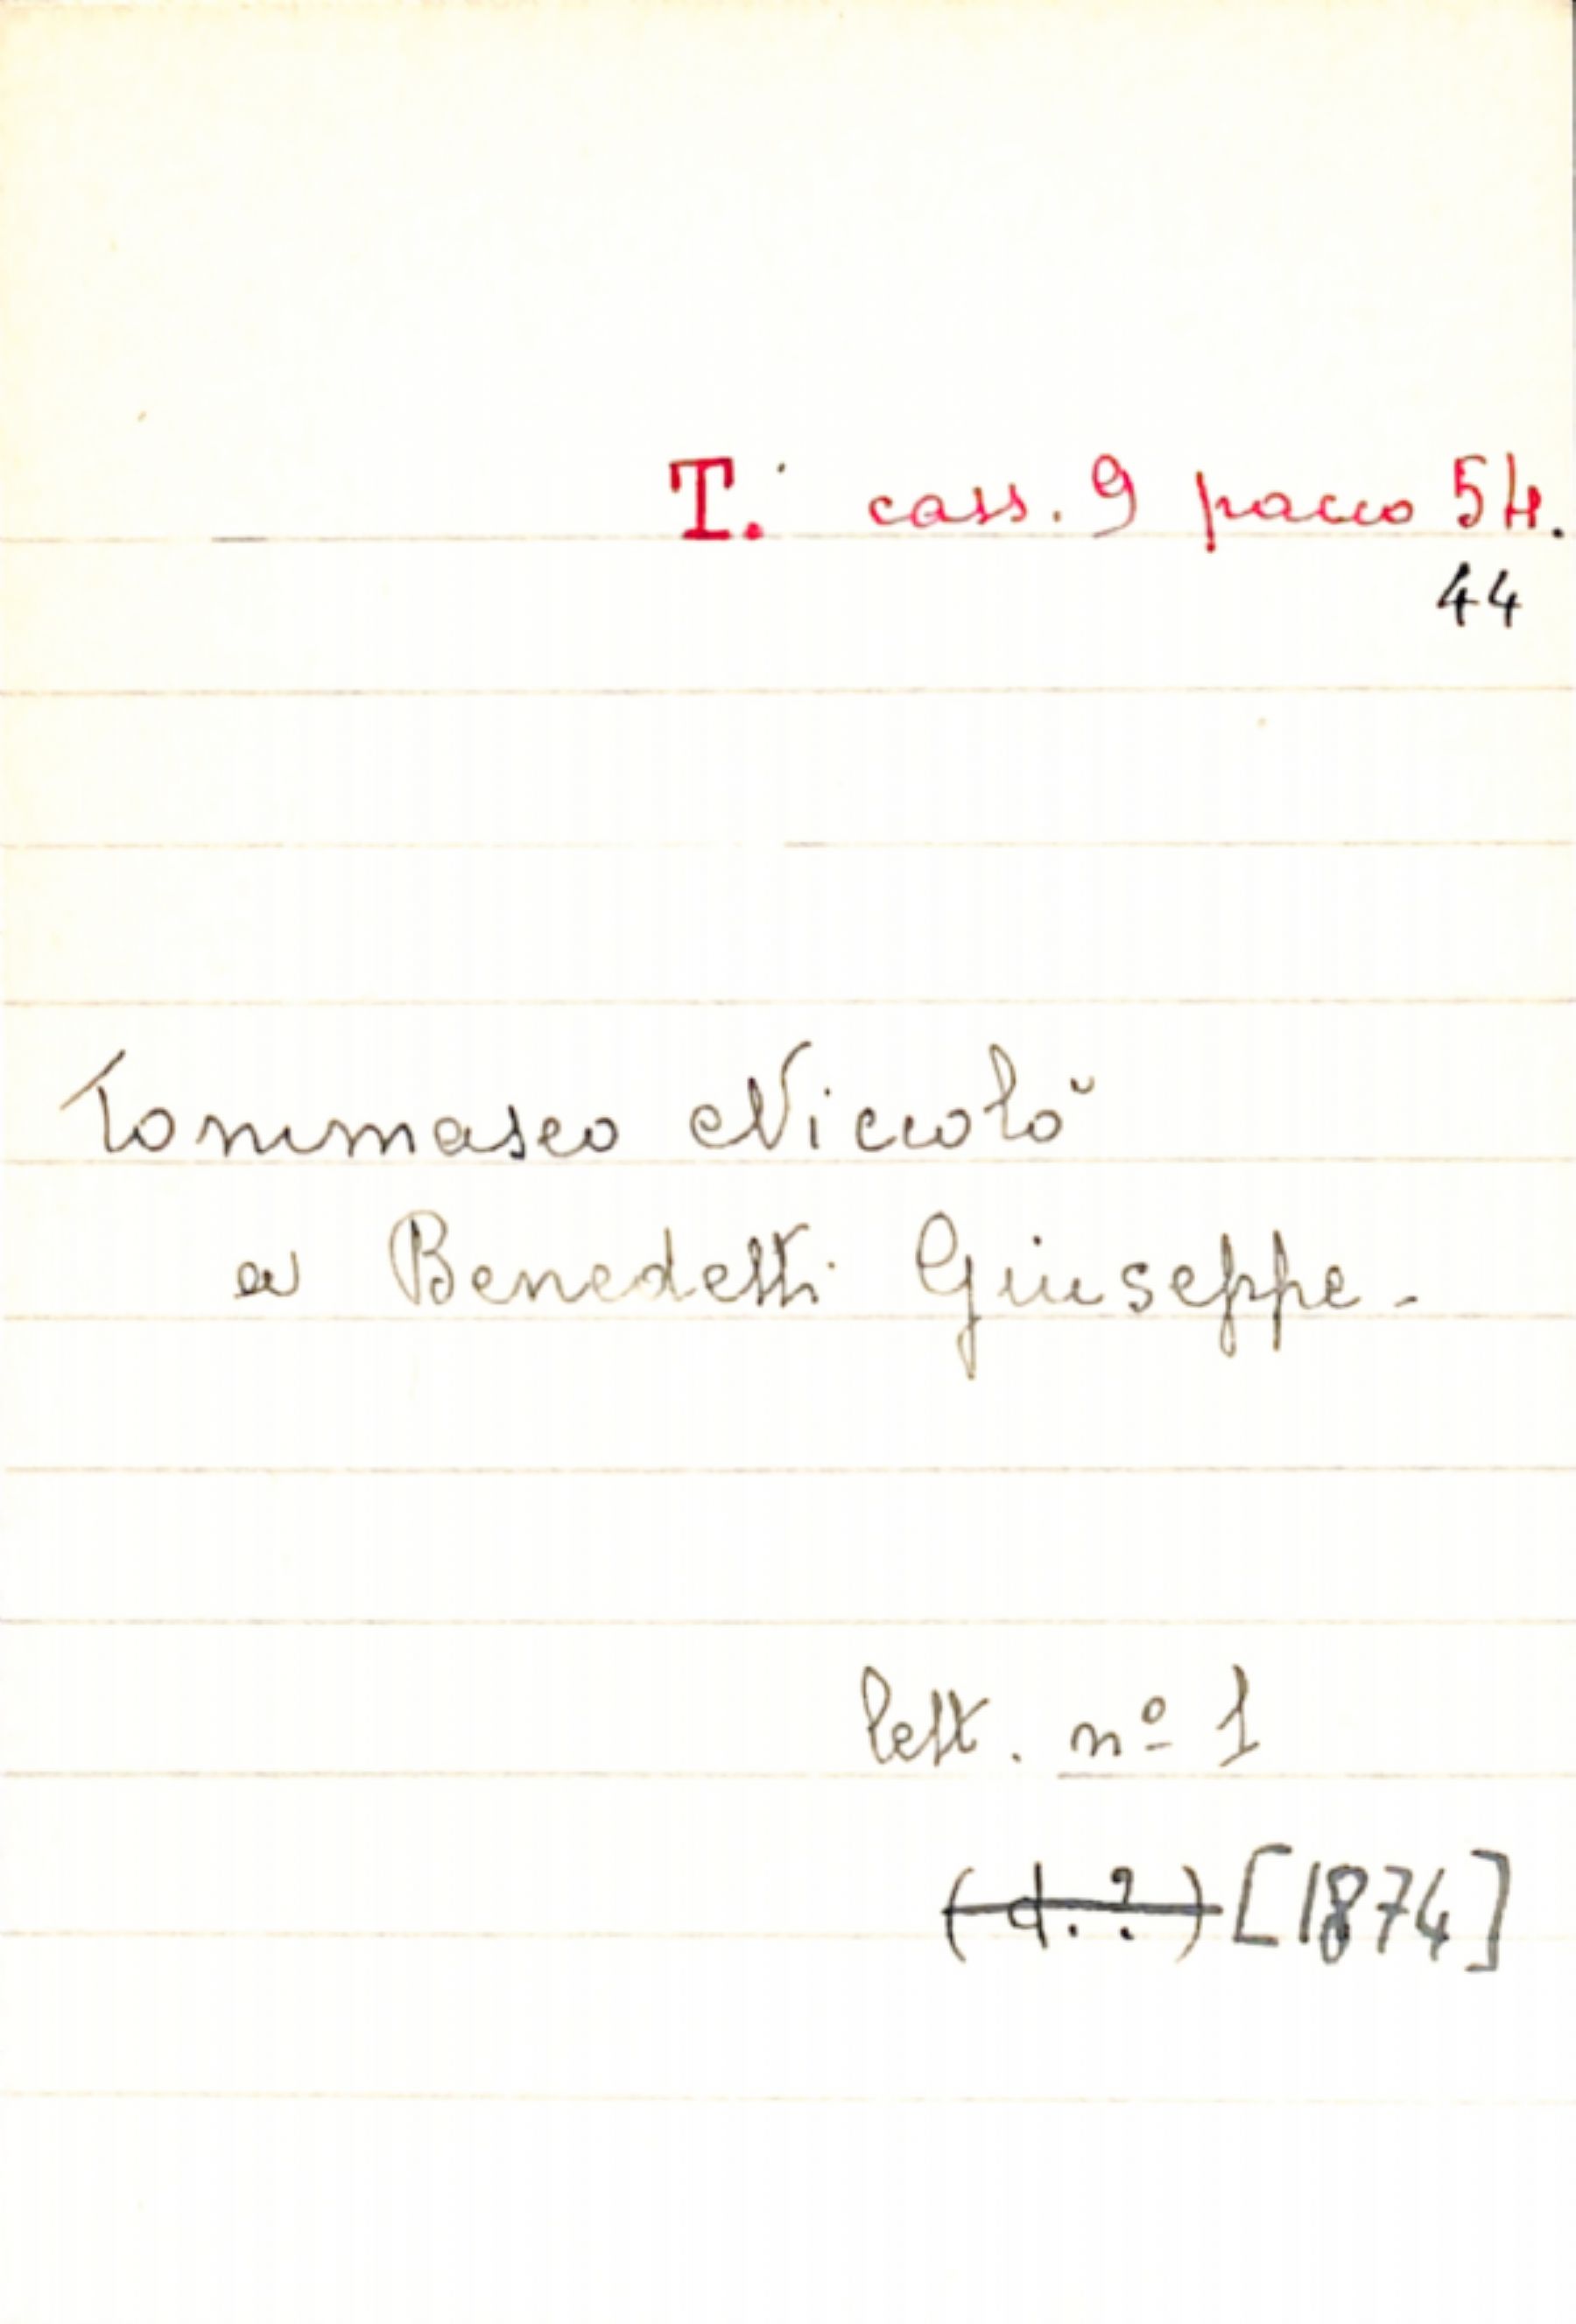 T. cass. 9 pacco 54.
44
Tommaseo Niccolò
a Benedetti Giuseppe.
lett. nº 1
(d. ?) [1874]